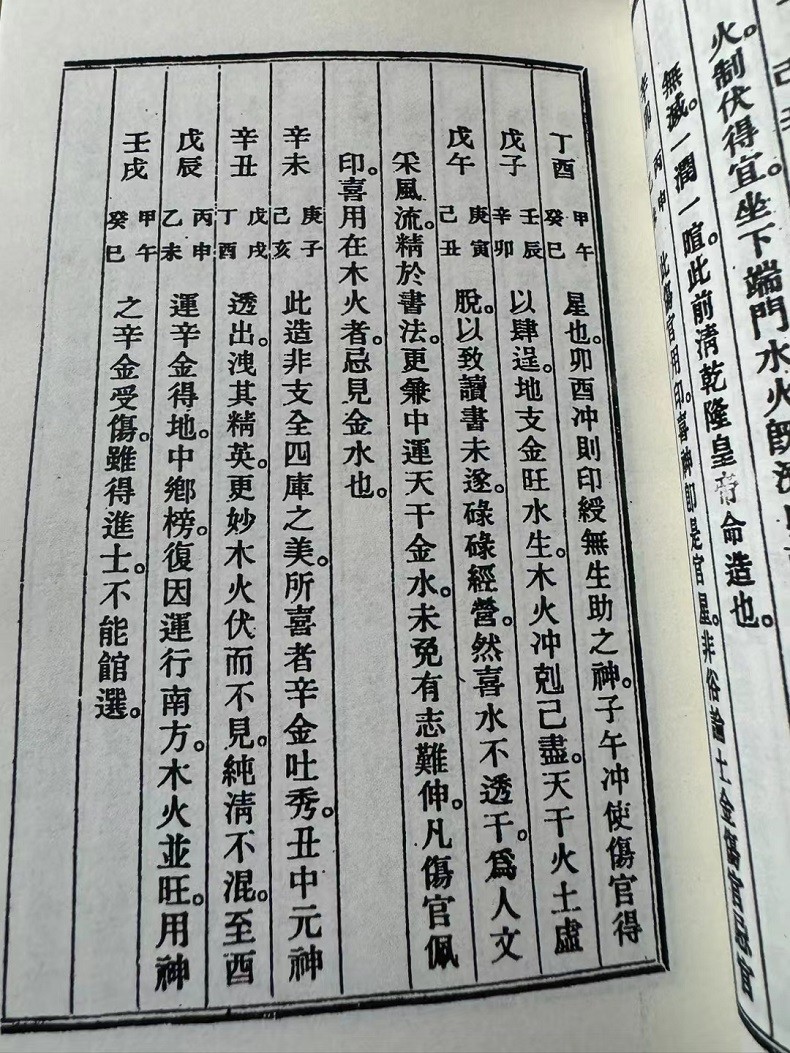 火。制伏得宜。坐下端門水火旣濟
無滅。一潤一暄。此前清乾隆皇帝命造也。
丙申 此傷官用印。喜神卽是官星。非俗論土金傷官忌官
丁酉 甲午 癸巳 星也。卯酉冲則印綬無生助之神。子午冲使傷官得
戊子 壬辰 辛卯 以肆逞。地支金旺水生。木火冲剋己盡。天干火土虛
戊午 庚寅 己丑 脫。以致讀書未遂。碌碌經營。然喜水不透干。爲人文
采風流。精於書法。更兼中運天干金水。未免有志難伸。凡傷官佩
印。喜用在木火者。忌見金水也。
辛未 庚子 己亥 此造非支全四庫之美。所喜者辛金吐秀。丑中元神
辛丑 戊戌 丁酉 透出。洩其精英。更妙木火伏而不見。純清不混。至酉
戊辰 丙申 乙未 運辛金得地。中鄉榜。復因運行南方。木火並旺。用神
壬戌 甲午 癸巳 之辛金受傷。雖得進士。不能館選。